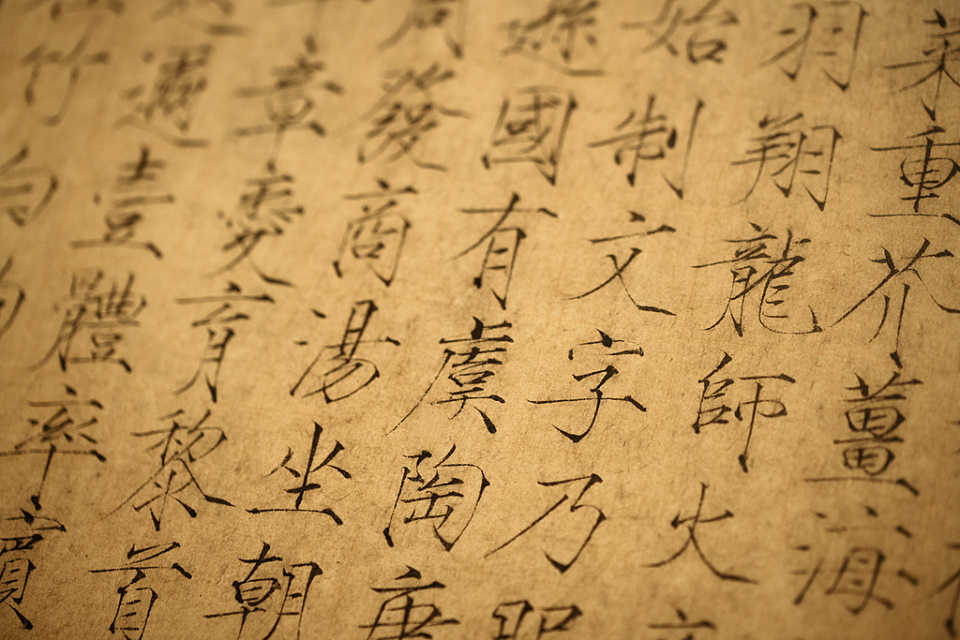 菜重芥薑海
羽翔龍師火
始制文字乃
遜國有虞陶唐
周發商湯坐朝
平章愛育黎首
邇壹體率賓
竹